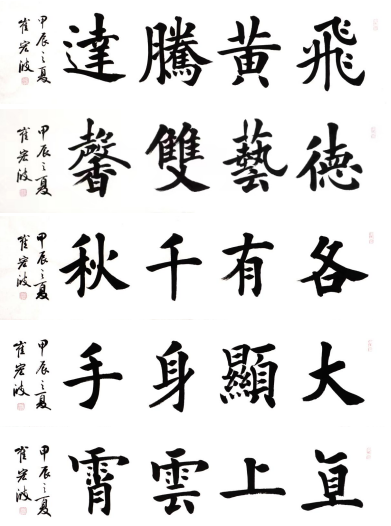 飛黄騰達
甲辰之夏
崔宏波
德藝雙馨
甲辰之夏
崔宏波
各有千秋
甲辰之夏
崔宏波
大顯身手
甲辰之夏
崔宏波
直上雲霄
甲辰之夏
崔宏波